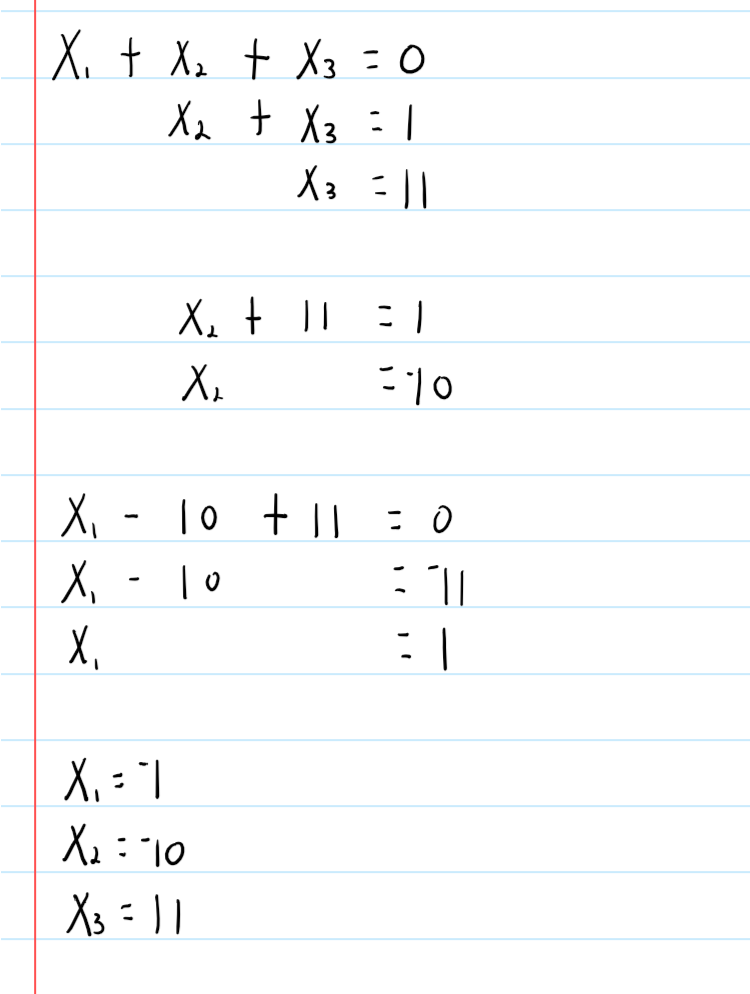 X₁ + X₂ + X₃ = 0
X₂ + X₃ = 1
X₃ = 11
X₂ + 11 = 1
X₂ = -10
X₁ - 10 + 11 = 0
X₁ - 10 = -11
X₁ = 1
X₁ = -1
X₂ = -10
X₃ = 11